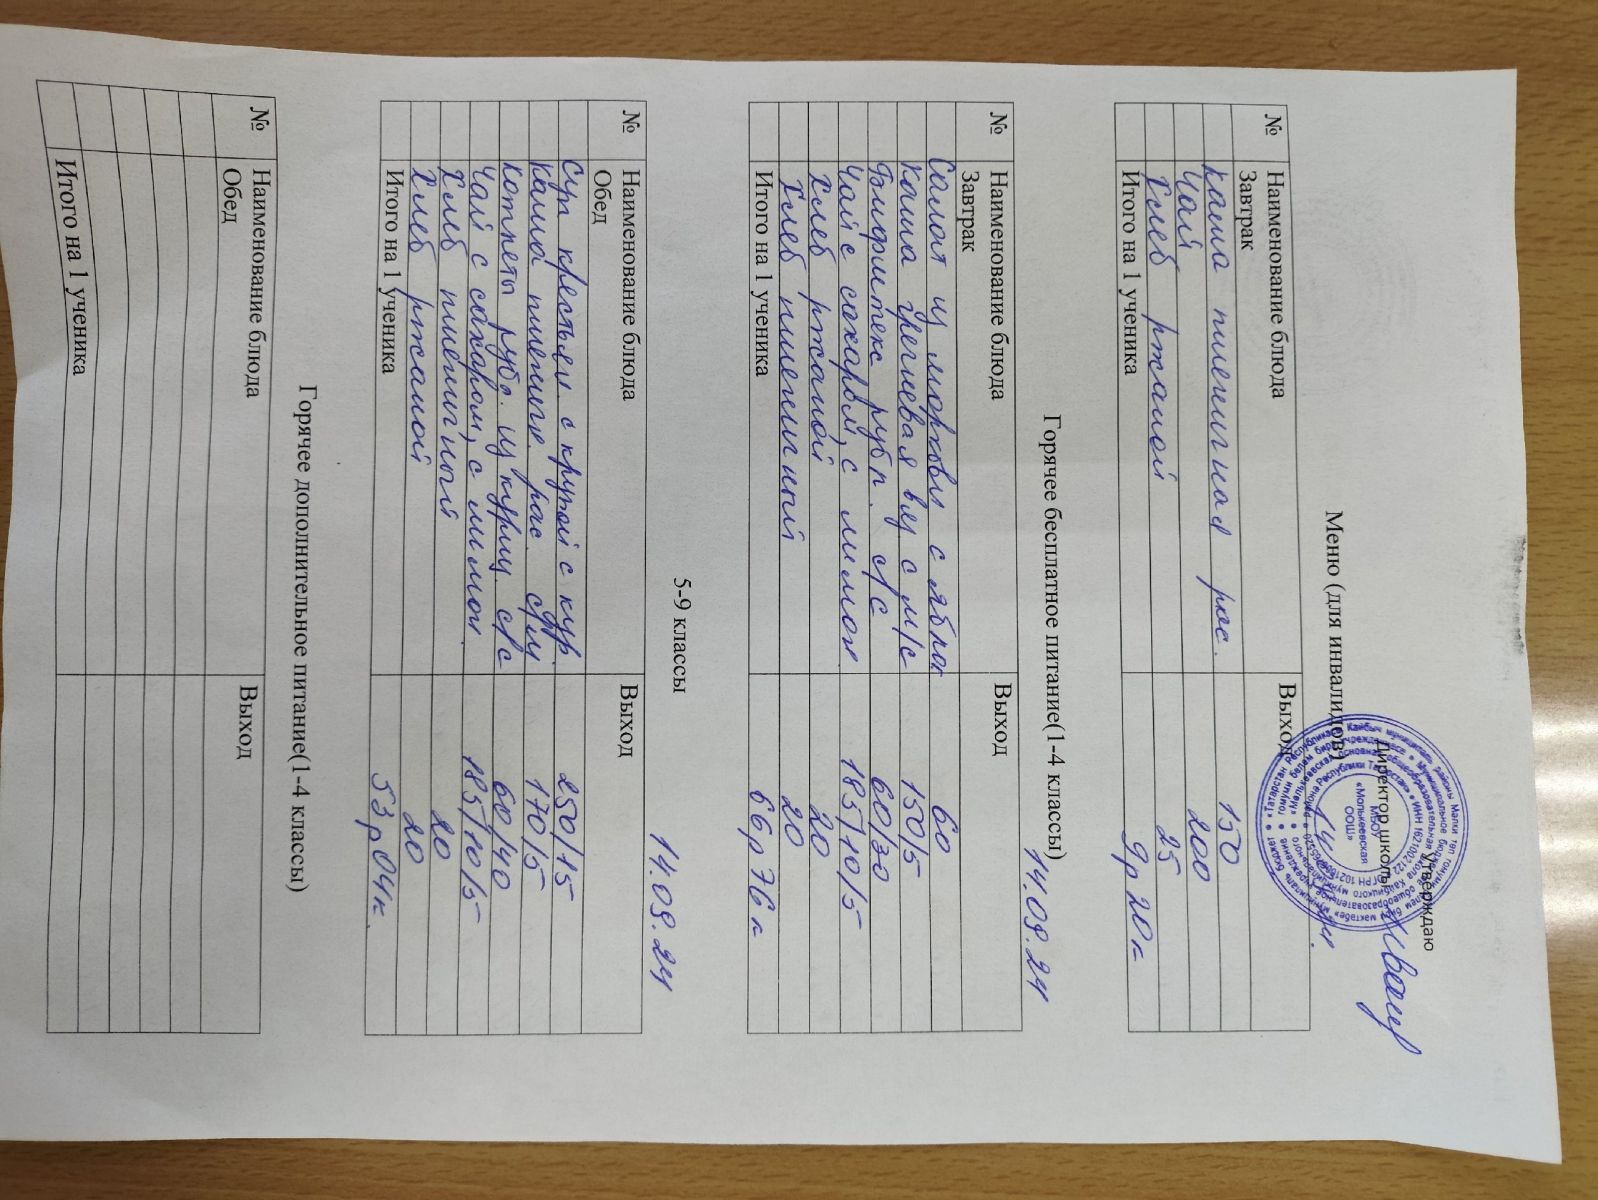 Утверждаю
Директор школы
МБОУ
«Молькеевская
ООШ»
Меню (для инвалидов)
№ Наименование блюда Выход
Завтрак
Каша пшеничная рас. 150
Чай 200
Хлеб ржаной 25
Итого на 1 ученика 9р 20к
Горячее бесплатное питание(1-4 классы)
14.09.24
№ Наименование блюда Выход
Завтрак
Салат из моркови с яблок 60
Каша гречневая вяз с м/с 150/5
Бифштекс рубл. с/с 60/30
Чай с сахаром, с лимон 185/10/5
Хлеб ржаной 20
Хлеб пшеничный 20
Итого на 1 ученика 66р 76к
5-9 классы
14.09.24
№ Наименование блюда Выход
Обед
Суп крестьян с крупой с кур. 250/15
Каша пшенич. рас. с/м 170/5
Котлеты руб. из куриц с/с 60/40
Чай с сахаром, с лимон. 185/10/5
Хлеб пшеничный 20
Хлеб ржаной 20
Итого на 1 ученика 53р 04к.
Горячее дополнительное питание(1-4 классы)
№ Наименование блюда Выход
Обед
Итого на 1 ученика